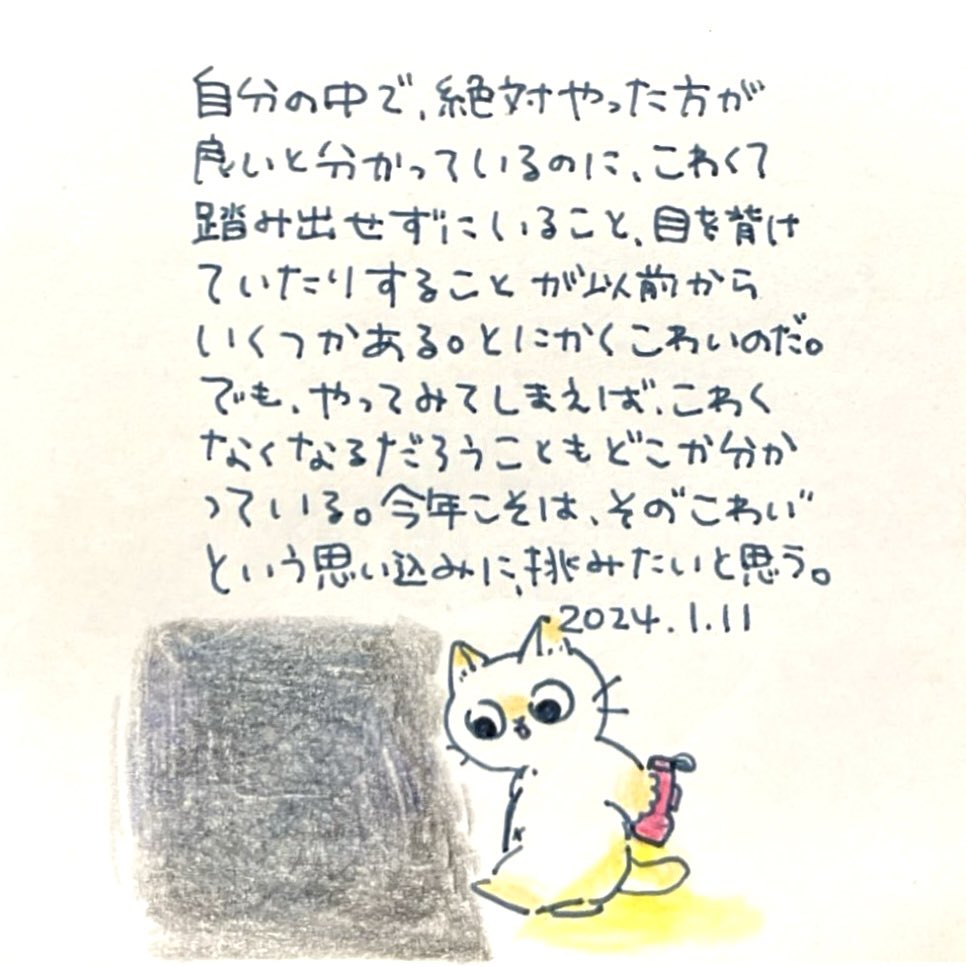 自分の中で、絶対やった方が
良いと分かっているのに、こわくて
踏み出せずにいること、目を背け
ていたりすることが以前から
いくつかある。とにかくこわいのだ。
でも、やってみてしまえば、こわく
なくなるだろうこともどこか分か
っている。今年こそは、その"こわい"
という思い込みに、挑みたいと思う。
2024.1.11